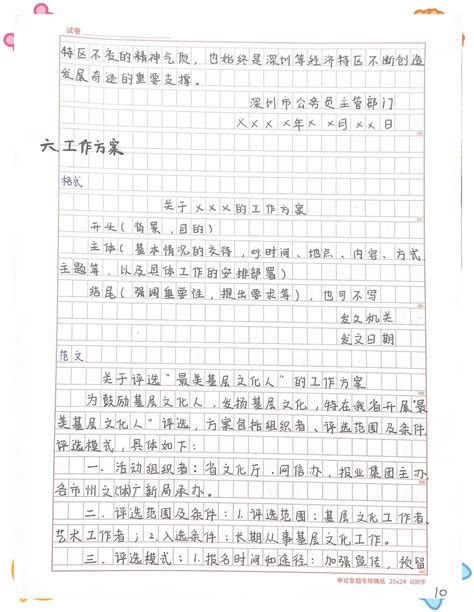 试卷
特区不变的精神气质,也始终是深圳等经济特区不断创造
发展奇迹的重要支撑。
深圳市公务员主管部门
××××年××月××日
六.工作方案
格式
关于×××的工作方案
开头(背景,目的)
主体(基本情况的交待,eg.时间、地点、内容、方式、
主题等,以及具体工作的安排部署)
结尾(强调重要性,提出要求等),也可不写
发文机关
发文日期
范文
关于评选"最美基层文化人"的工作方案
为鼓励基层文化人,发扬基层文化,特在我省开展"最
美基层文化人"评选,方案包括组织者、评选范围及条件、
评选模式,具体如下:
一.活动组织者:省文化厅、网信办、报业集团主办,
各市州文(体)广新局承办。
二.评选范围及条件:1.评选范围:基层文化工作者、
艺术工作者;2.入选条件:长期从事基层文化工作。
三.评选模式:1.报名时间和途径:加强宣传,预留
申论答题专用稿纸 25x24 600字
10